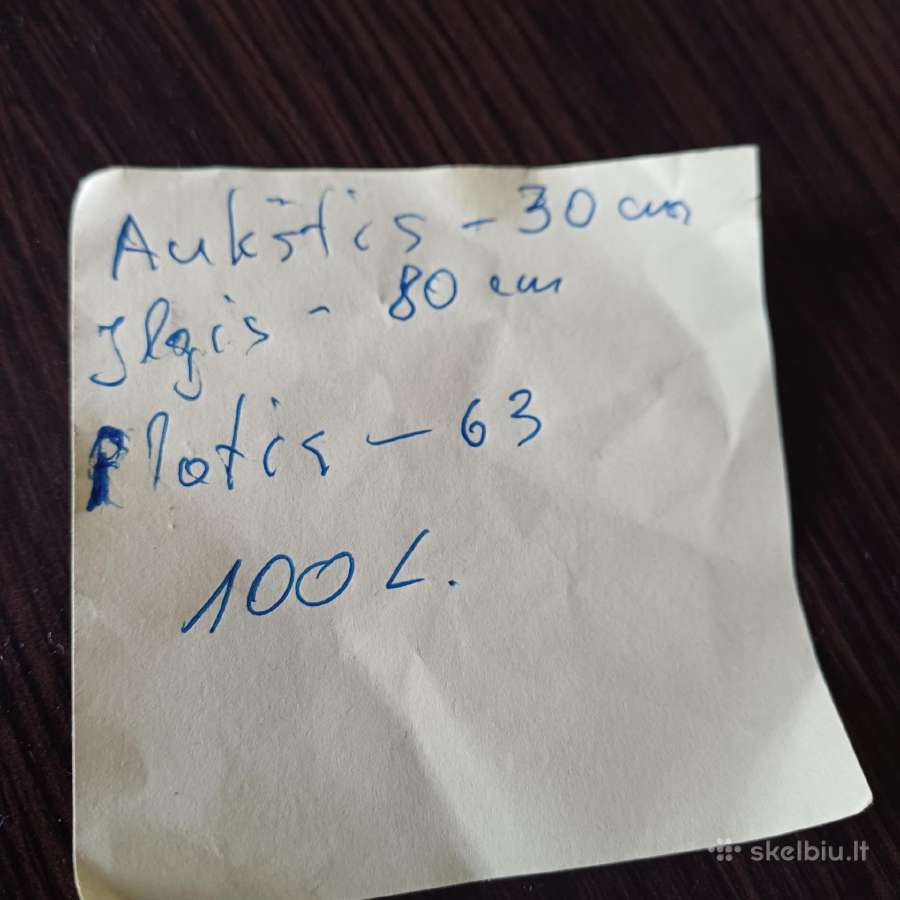 Aukštis - 30 cm
Ilgis - 80 cm
Plotis - 63
100 L.
skelbiu.lt